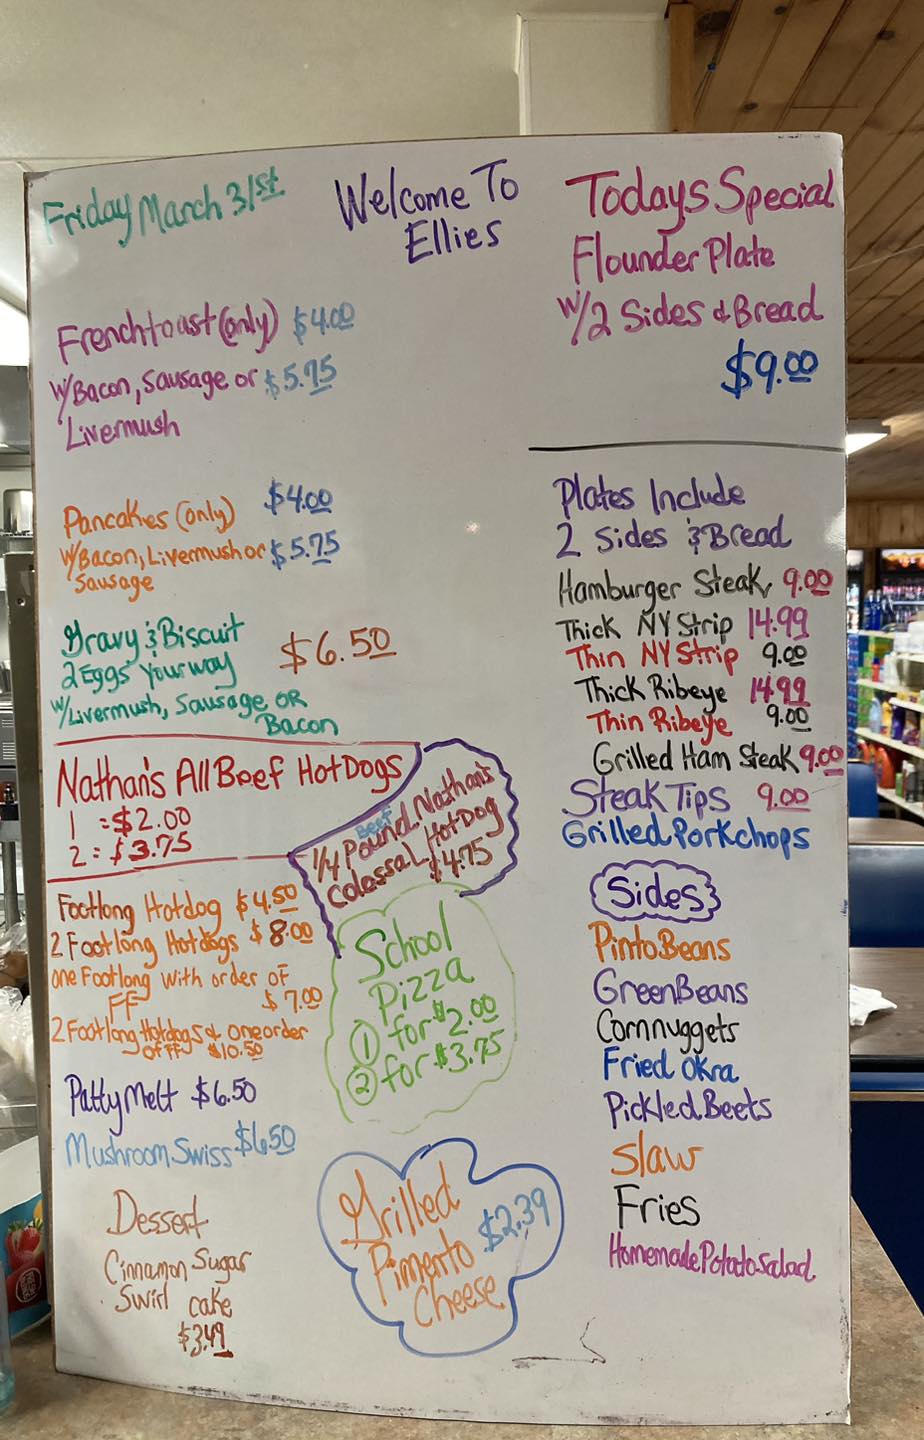 Friday March 31st
Welcome To
Ellies
Todays Special
Flounder Plate
w/2 Sides & Bread
$9.00
Frenchtoast (only) $4.00
w/Bacon, Sausage or $5.75
Livermush
Pancakes (only) $4.00
w/Bacon, Livermush or $5.75
Sausage
Gravy & Biscuit
2 Eggs Your way $6.50
w/Livermush, Sausage OR
Bacon
Nathan's All Beef Hot Dogs
1 = $2.00
2 = $3.75
1/4 Pound Nathan's
Beef
Colossal Hot Dog
$4.75
Footlong Hotdog $4.50
2 Footlong Hotdogs $8.00
one Footlong with order of
FF $7.00
2 Footlong Hotdogs & one order
of FF $10.50
Patty Melt $6.50
Mushroom Swiss $6.50
Dessert
Cinnamon Sugar
Swirl cake
$3.49
School
Pizza
① for $2.00
② for $3.75
Grilled
Pimento $2.39
Cheese
Plates Include
2 Sides & Bread
Hamburger Steak 9.00
Thick NY Strip 14.99
Thin NY Strip 9.00
Thick Ribeye 14.99
Thin Ribeye 9.00
Grilled Ham Steak 9.00
Steak Tips 9.00
Grilled Porkchops
Sides
Pinto Beans
Green Beans
Cornnuggets
Fried Okra
Pickled Beets
Slaw
Fries
Homemade Potato Salad